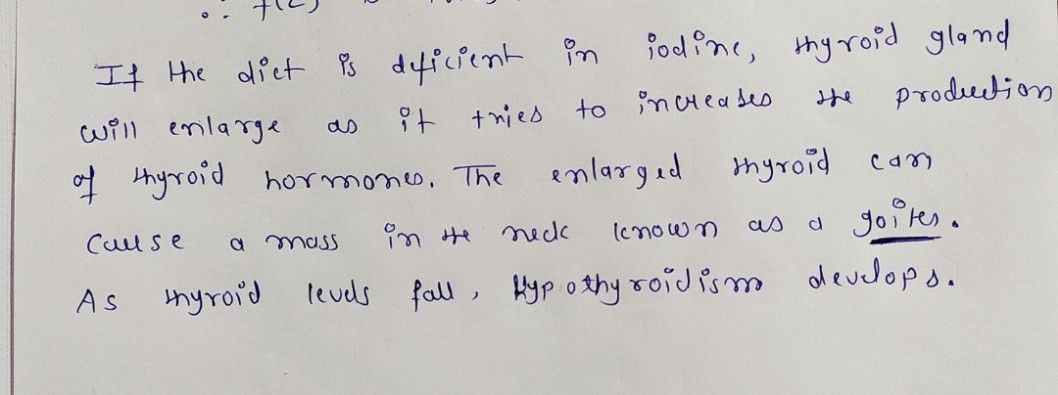 If the diet is deficient in iodine, thyroid gland
will enlarge as it tries to increases the production
of thyroid hormones. The enlarged thyroid can
cause a mass in the neck known as a goiter.
As thyroid levels fall, Hypothyroidism develops.